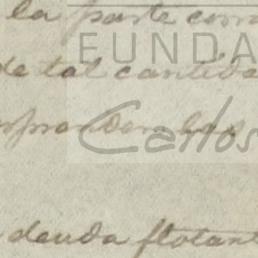 la parte com
EUNDA
de tal cantida
Carlos
las
deuda flotant